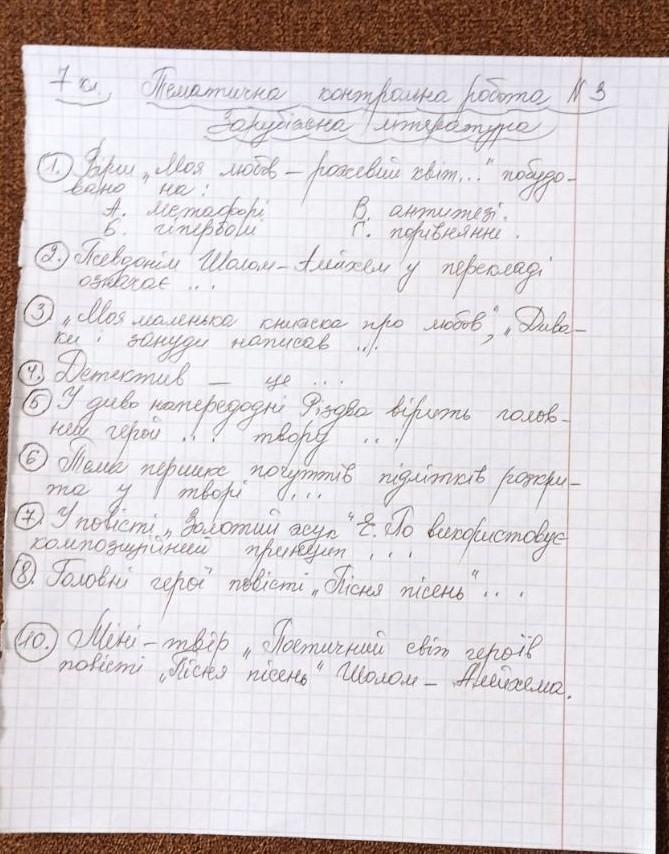 7 кл. Тематична контрольна робота №3
Зарубіжна література
1. Вірш „Моя любов – рожевий квіт..." побудо-
вано на:
А. метафорі В. антитезі.
Б. гіперболі Г. порівнянні.
2. Псевдонім Шолом-Алейхем у перекладі
означає ...
3 „Моя маленька книжка про любов", „Дива-
ки і зануди написав ...
4. Детектив – це ...
5 У диво напередодні Різдва вірить голов-
ний герой ... твору ...
6 Тема перших почуттів підлітків розкри-
та у творі ...
7. У повісті „Золотий жук" Е. По використовує
композиційний принцип ...
8. Головні герої повісті „Пісня пісень" ...
10. Міні-твір „Поетичний світ героїв
повісті „Пісня пісень" Шолом-Алейхема.